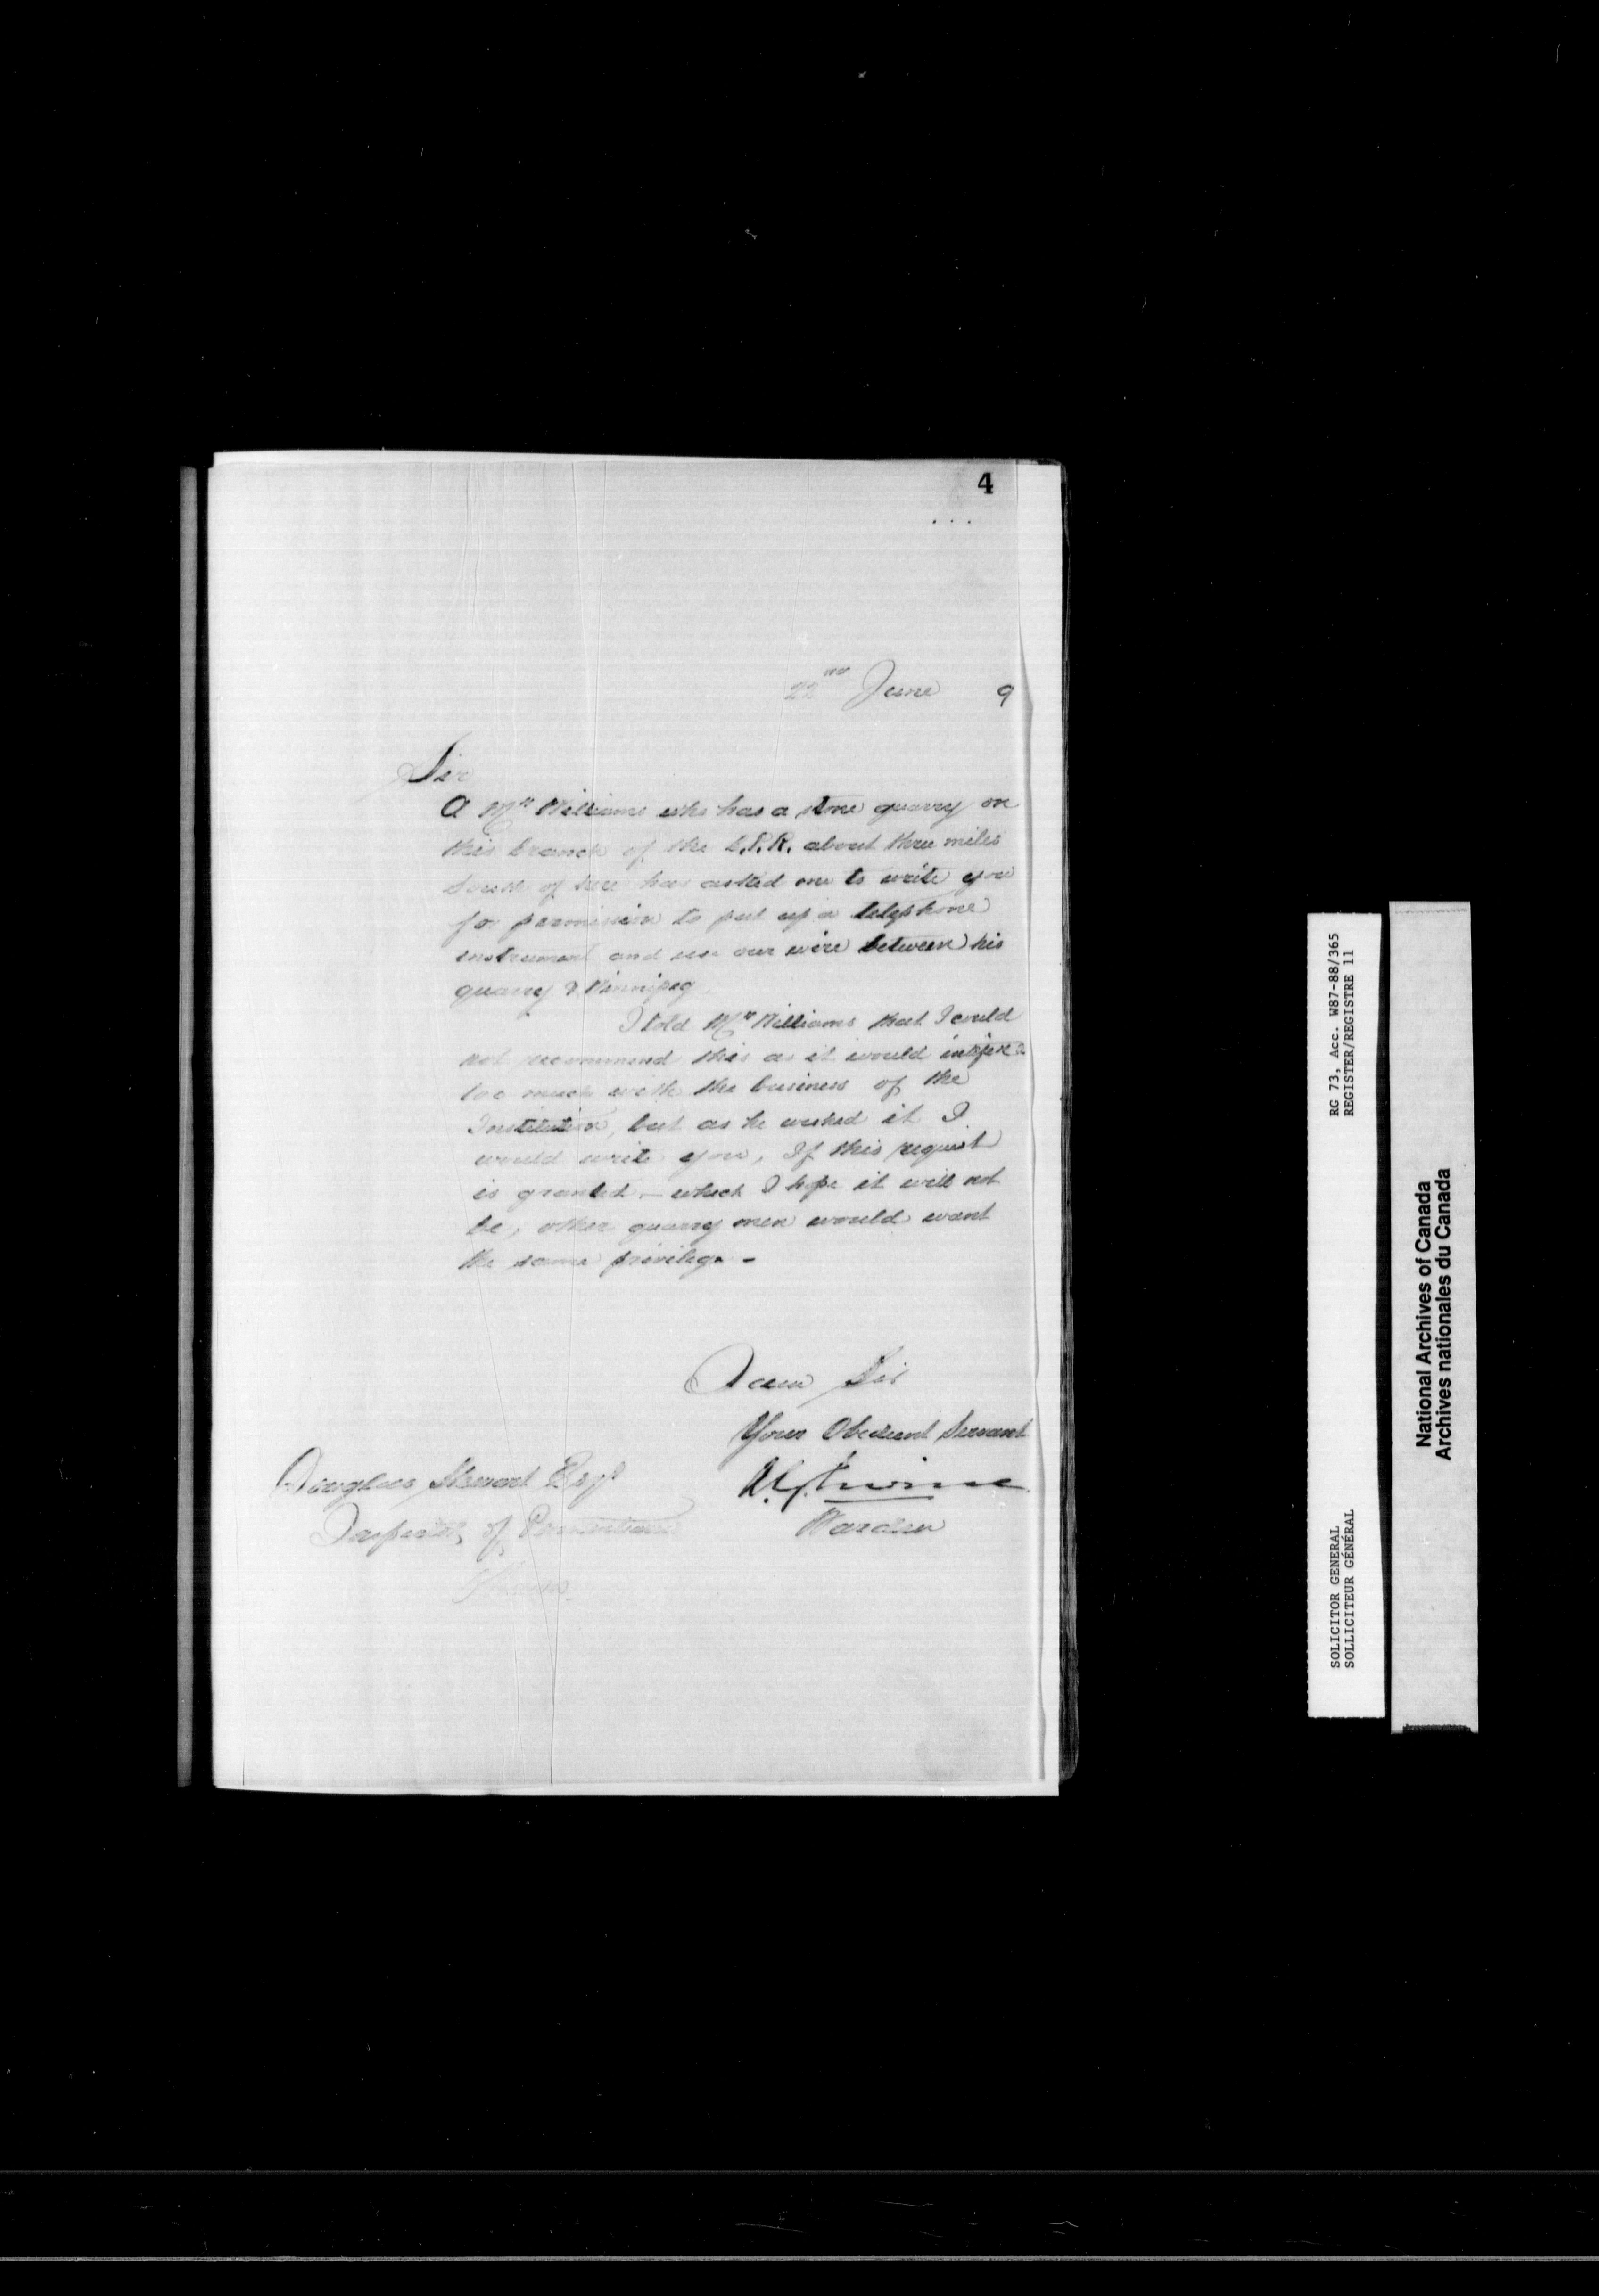 4
22nd June 9
Sir
A Mr Williams who has a stone quarry on
this branch of the C.P.R. about three miles
South of here has asked me to write you
for permission to put up a telephone
instrument and use our wire between his
quarry & Winnipeg.
I told Mr Williams that I could
not recommend this as it would interfere
too much with the business of the
Institution, but as he wished it I
would write you, If this request
is granted – which I hope it will not
be, other quarry men would want
the same privilege –
I am Sir
Your Obedient Servant
A.G. Irvine
Warden
Douglas Stewart Esqr
Inspector of Penitentiaries
Ottawa
RG 73, Acc. W87-88/365
REGISTER/REGISTRE 11
SOLICITOR GENERAL
SOLLICITEUR GÉNÉRAL
National Archives of Canada
Archives nationales du Canada